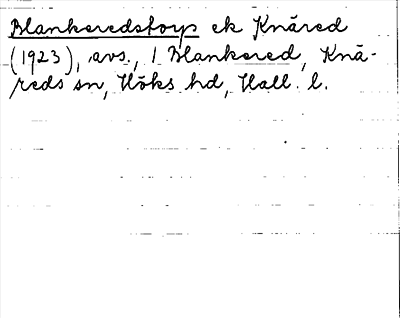 Blankeredstorp ek Knäred
(1923), avs., 1 Blankered, Knä-
reds sn, Höks hd, Hall. l.